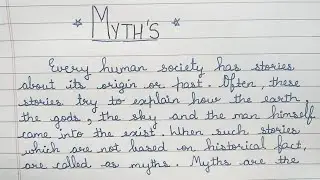 * MYTH'S *
Every human society has stories
about its origin or past. Often, these
stories try to explain how the earth,
the gods, the sky and the man himself
came into the exist. When such stories
which are not based on historical fact,
are called as myths. Myths are the